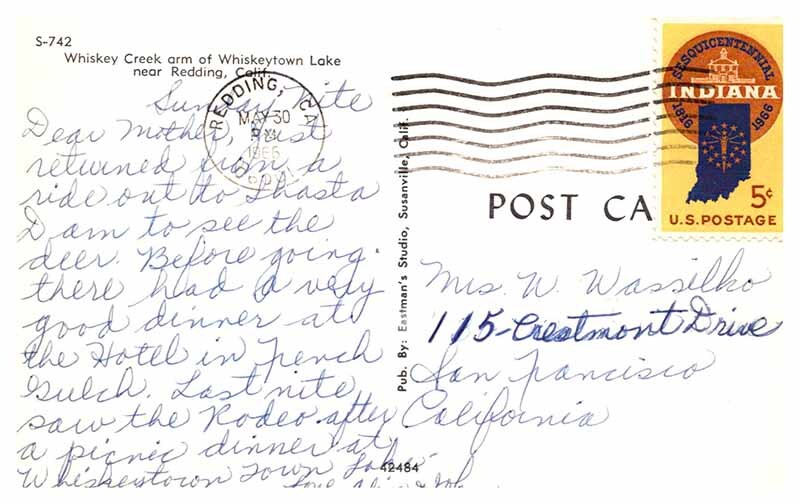 S-742
Whiskey Creek arm of Whiskeytown Lake
near Redding, Calif.
Sunday Nite
Dear Mother, Just
returned from a
ride out to Shasta
Dam to see the
deer. Before going
there had a very
good dinner at
the Hotel in French
Gulch. Last nite
saw the Rodeo after
a picnic dinner at
Whiskeytown Town Lake.
Love
REDDING, CA
MAY 30
PM
1966
Pub. By: Eastman's Studio, Susanville, Calif.
42484
POST CA
SESQUICENTENNIAL
INDIANA
1816 1966
5¢
U.S. POSTAGE
Mrs. W. Wassilko
115-Crestmont Drive
San Francisco
California